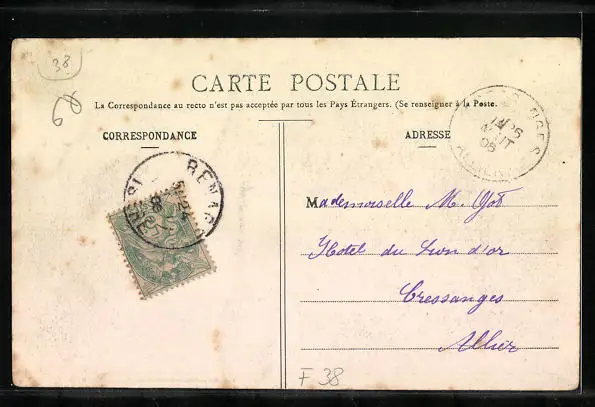 38
CARTE POSTALE
La Correspondance au recto n'est pas acceptée par tous les Pays Étrangers. (Se renseigner à la Poste.
CORRESPONDANCE
ADRESSE
RENAGE
Mademoiselle M. Got
Hotel du Lion d'or
Cressanges
Allier
F 38